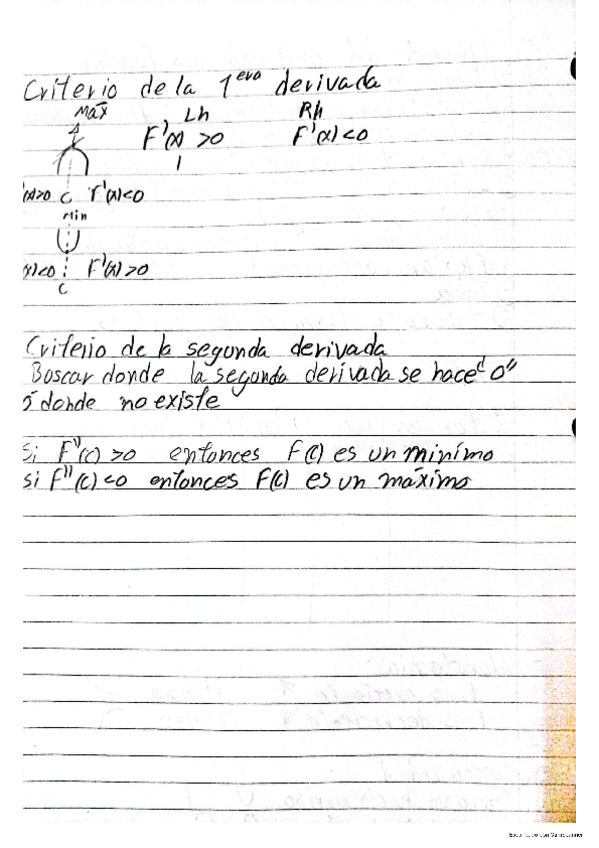 Criterio de la 1era derivada
Máx Lh Rh
F'(x) >0 F'(x)<0
(x)>0 C F'(x)<0
Min
(x)<0 F'(x)>0
C
Criterio de la segunda derivada
Buscar donde la segunda derivada se hace "0"
ó donde no existe
Si F''(c) >0 entonces F(c) es un minimo
si F''(c) <0 entonces F(c) es un máximo